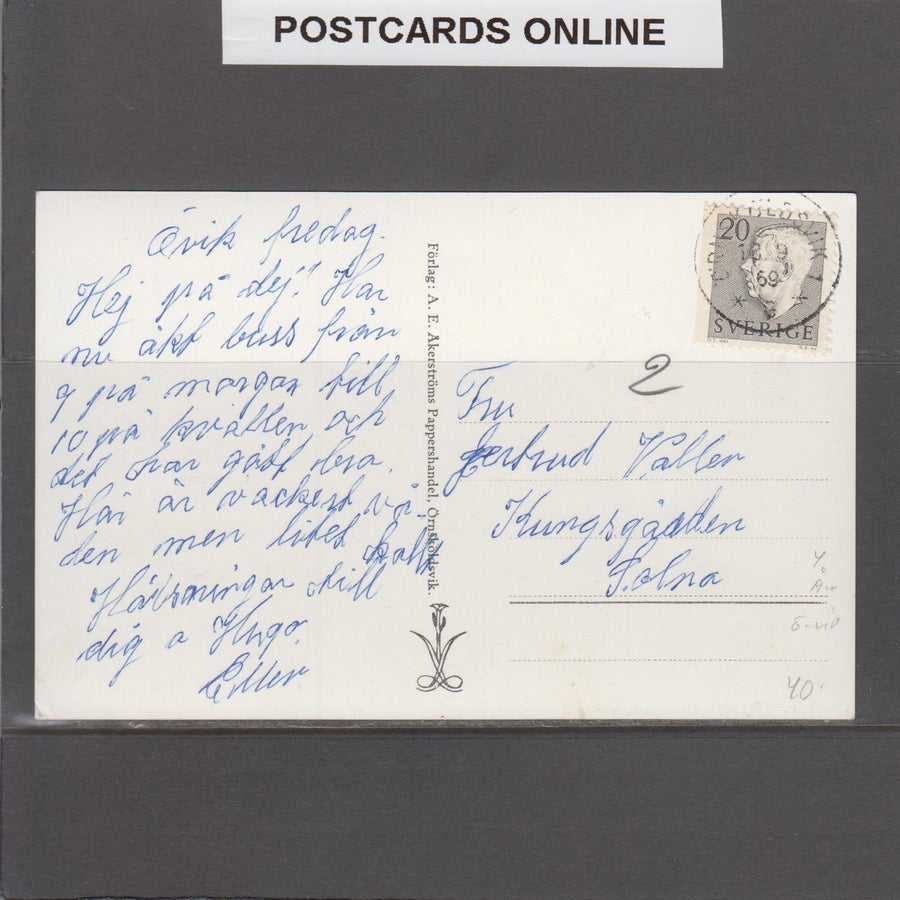 POSTCARDS ONLINE
Övik fredag.
Hej på dej! Har
nu åkt buss från
9 på morgon till
10 på kvällen och
det har gått bra.
Här är vackert vä-
den men litet kallt
Hälsningar till
dig o Hugo.
Förlag: A. E. Åkerströms Pappershandel, Örnsköldsvik.
20
SVERIGE
2
Fru
Gertrud Valler
Kungsgården
Solna
40.